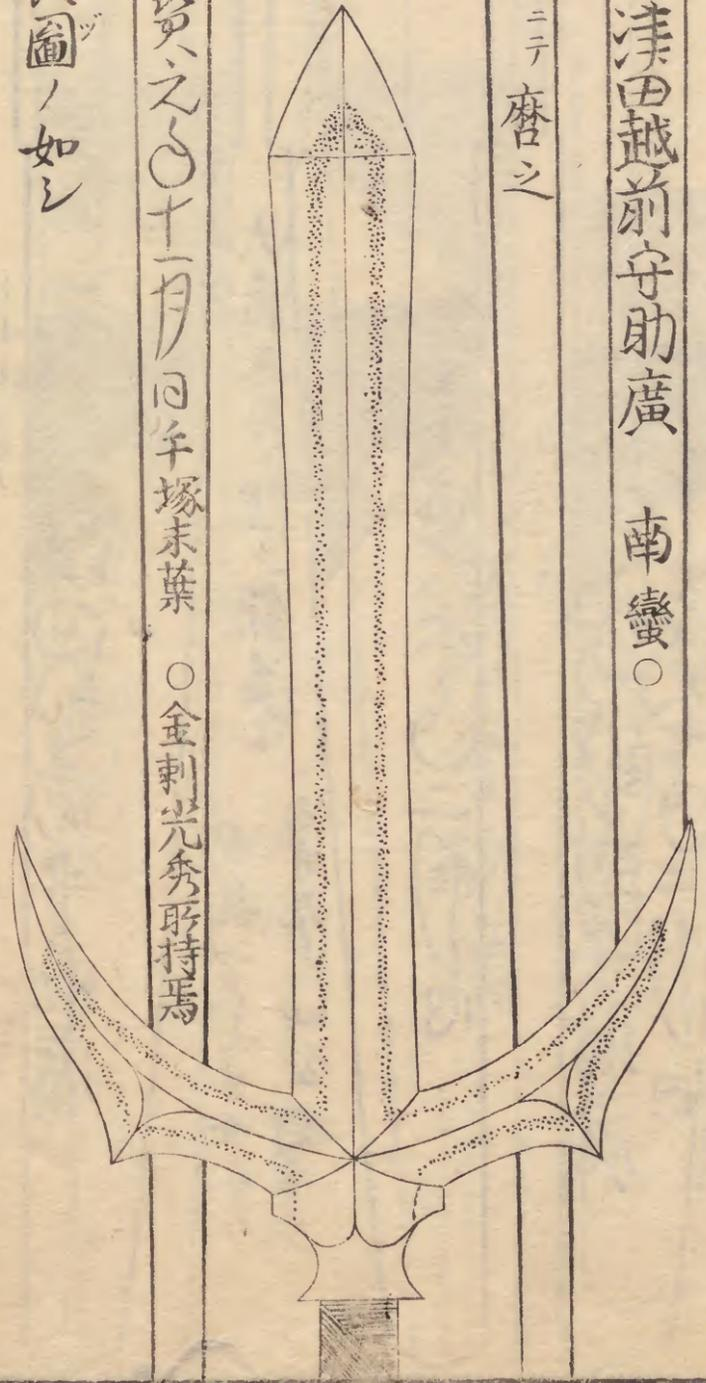 津田越前守助廣　南蠻○
ニテ磨之
元年十一月日手塚末葉　○金刺光秀所持焉
圖ノ如シ
ヅ